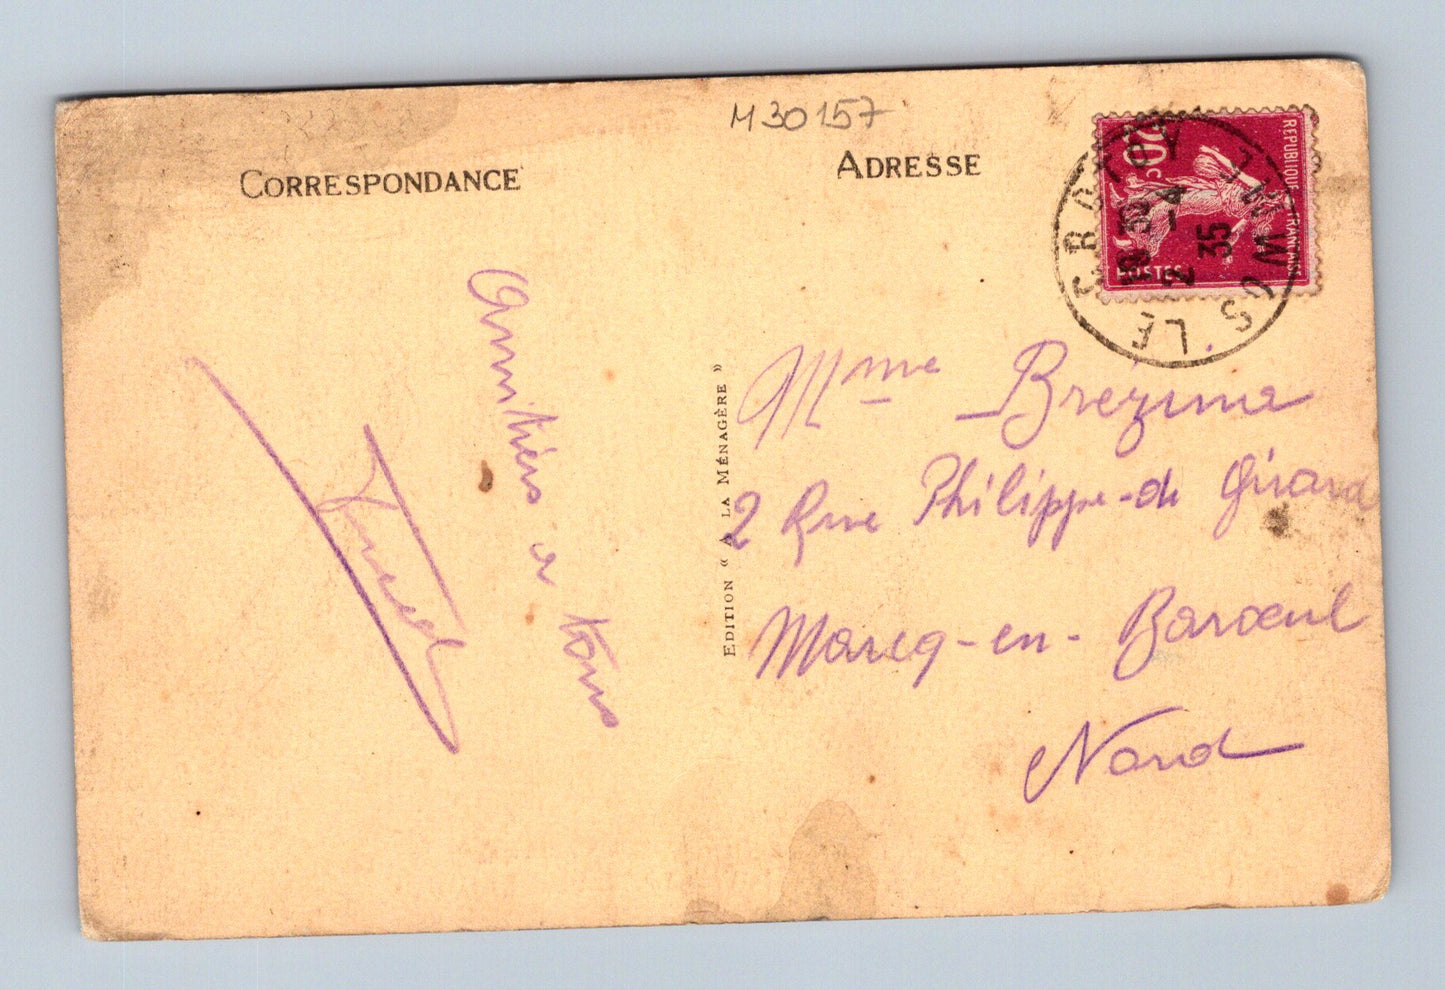 M30157
CORRESPONDANCE
ADRESSE
20c
REPUBLIQUE FRANÇAISE
POSTES
LE CROTOY SOMME
19 30
2 -4
35
Amitiés a
tous
EDITION « A LA MÉNAGÈRE »
Mme Brézina
2 Rue Philippe-de Girard
Marcq-en-Baroeul
Nord